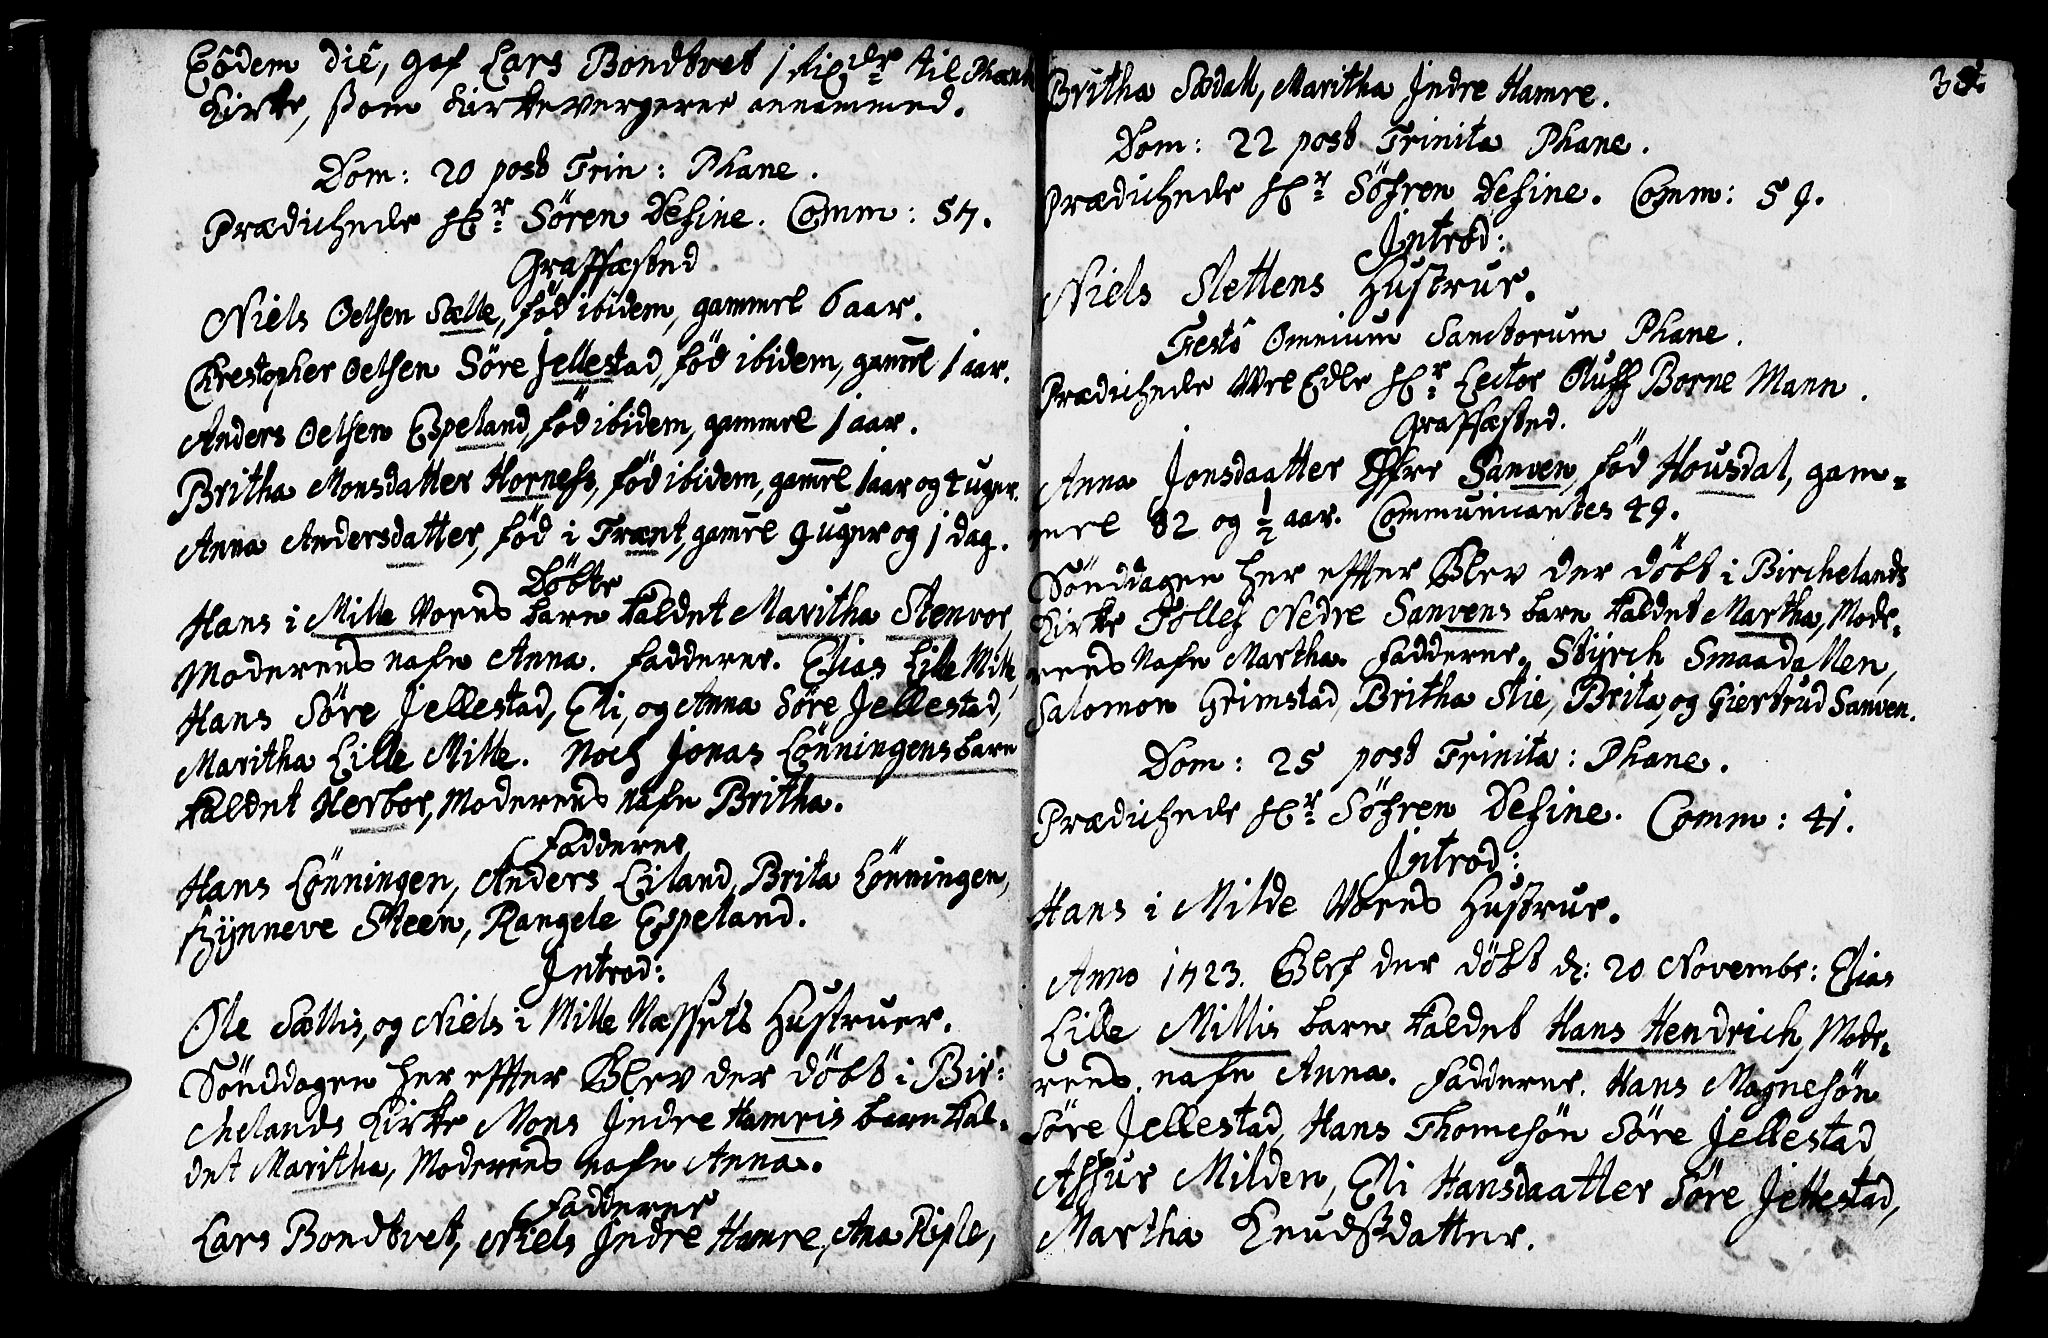 Eôdem diê, gaf Lars Bondtvet 1 til Phane
Kirke, som Kirkevergerne annammed.
Dom: 20 post Trin: Phane.
Prædichede Hr Sören Desine. Comm: 57.
Graffæsted
Niels Oelsen Sælle, fød ibidem, gammel 6 aar.
Chrestopher Oelsen Søre Jellestad, fød ibidem, gam̅el 1 aar.
Anders Oelsen Espeland, fød ibidem, gammel 1 aar.
Britha Monsdatter Horness, fød ibidem, gam̅el 1 aar og uger.
Anna Andersdatter, fød i Trænt, gam̅el 9 uger og 1 dag.
Döbte
Hans i Milde Vores barn kaldet Maritha Stenvor,
Moderens nafn Anna. Fadderne. Elias Lille Milde,
Hans Søre Jellestad, Eli, og Anna Søre Jellestad,
Maritha Lille Milde. Noch Jonas Lønningens barn
kaldet Herbor, Moderens nafn Britha.
Fadderne
Hans Lønningen, Anders Liland, Brita Lønningen,
Zynneve Steen, Rangele Espeland.
Introd:
Ole Sællis, og Niels i Milde Næssets Hustruer.
Sönddagen her effter Blev der döbt i Bir:
chelands Kirke Mons Indre Hamris barn kal-
det Maritha, Moderens nafn Anna.
Fadderne
Lars Bondtvet, Niels Indre Hamre, Ana Riple,
Britha Sædall, Maritha Indre Hamre.
Dom: 22 post Trinita Phane.
Prædichede Hr Söfren Desine. Comm: 59.
Introd:
Niels Slettens Hustrue.
Festô Omnium Sanctorum Phane.
Prædichede Vel Edle Hr Lector Oluff Borneman.
Graffæsted.
Anna Jonsdaatter Øfre Sanven, fød Housdal, gam-
mel 82 og ½ aar. Communicantes 49.
Sönddagen her effter Blev der döbt i Birchelands
Kirke Tollef Nedre Sanvens barn kaldet Martha, Mode-
rens Nafn Martha. Fadderne. Styrch Smaadallen,
Salomon Grimstad, Britha Stie, Brita, og Giertrud Sanven.
Dom: 25 post Trinita: Phane.
Prædichede Hr Söfren Desine. Comm: 41.
Introd:
Hans i Milde Vores Hustrue.
Anno 1723. Blef der döbt d: 20 Novembr: Elias
Lille Millis barn kaldet Hans Hendrich, Mode-
rens nafn Anna. Fadderne. Hans Magnesøn
Søre Jellestad, Hans Thomesøn Søre Jellestad,
Assur Milden, Eli Hansdaatter Søre Jellestad,
Martha Knudsdatter.